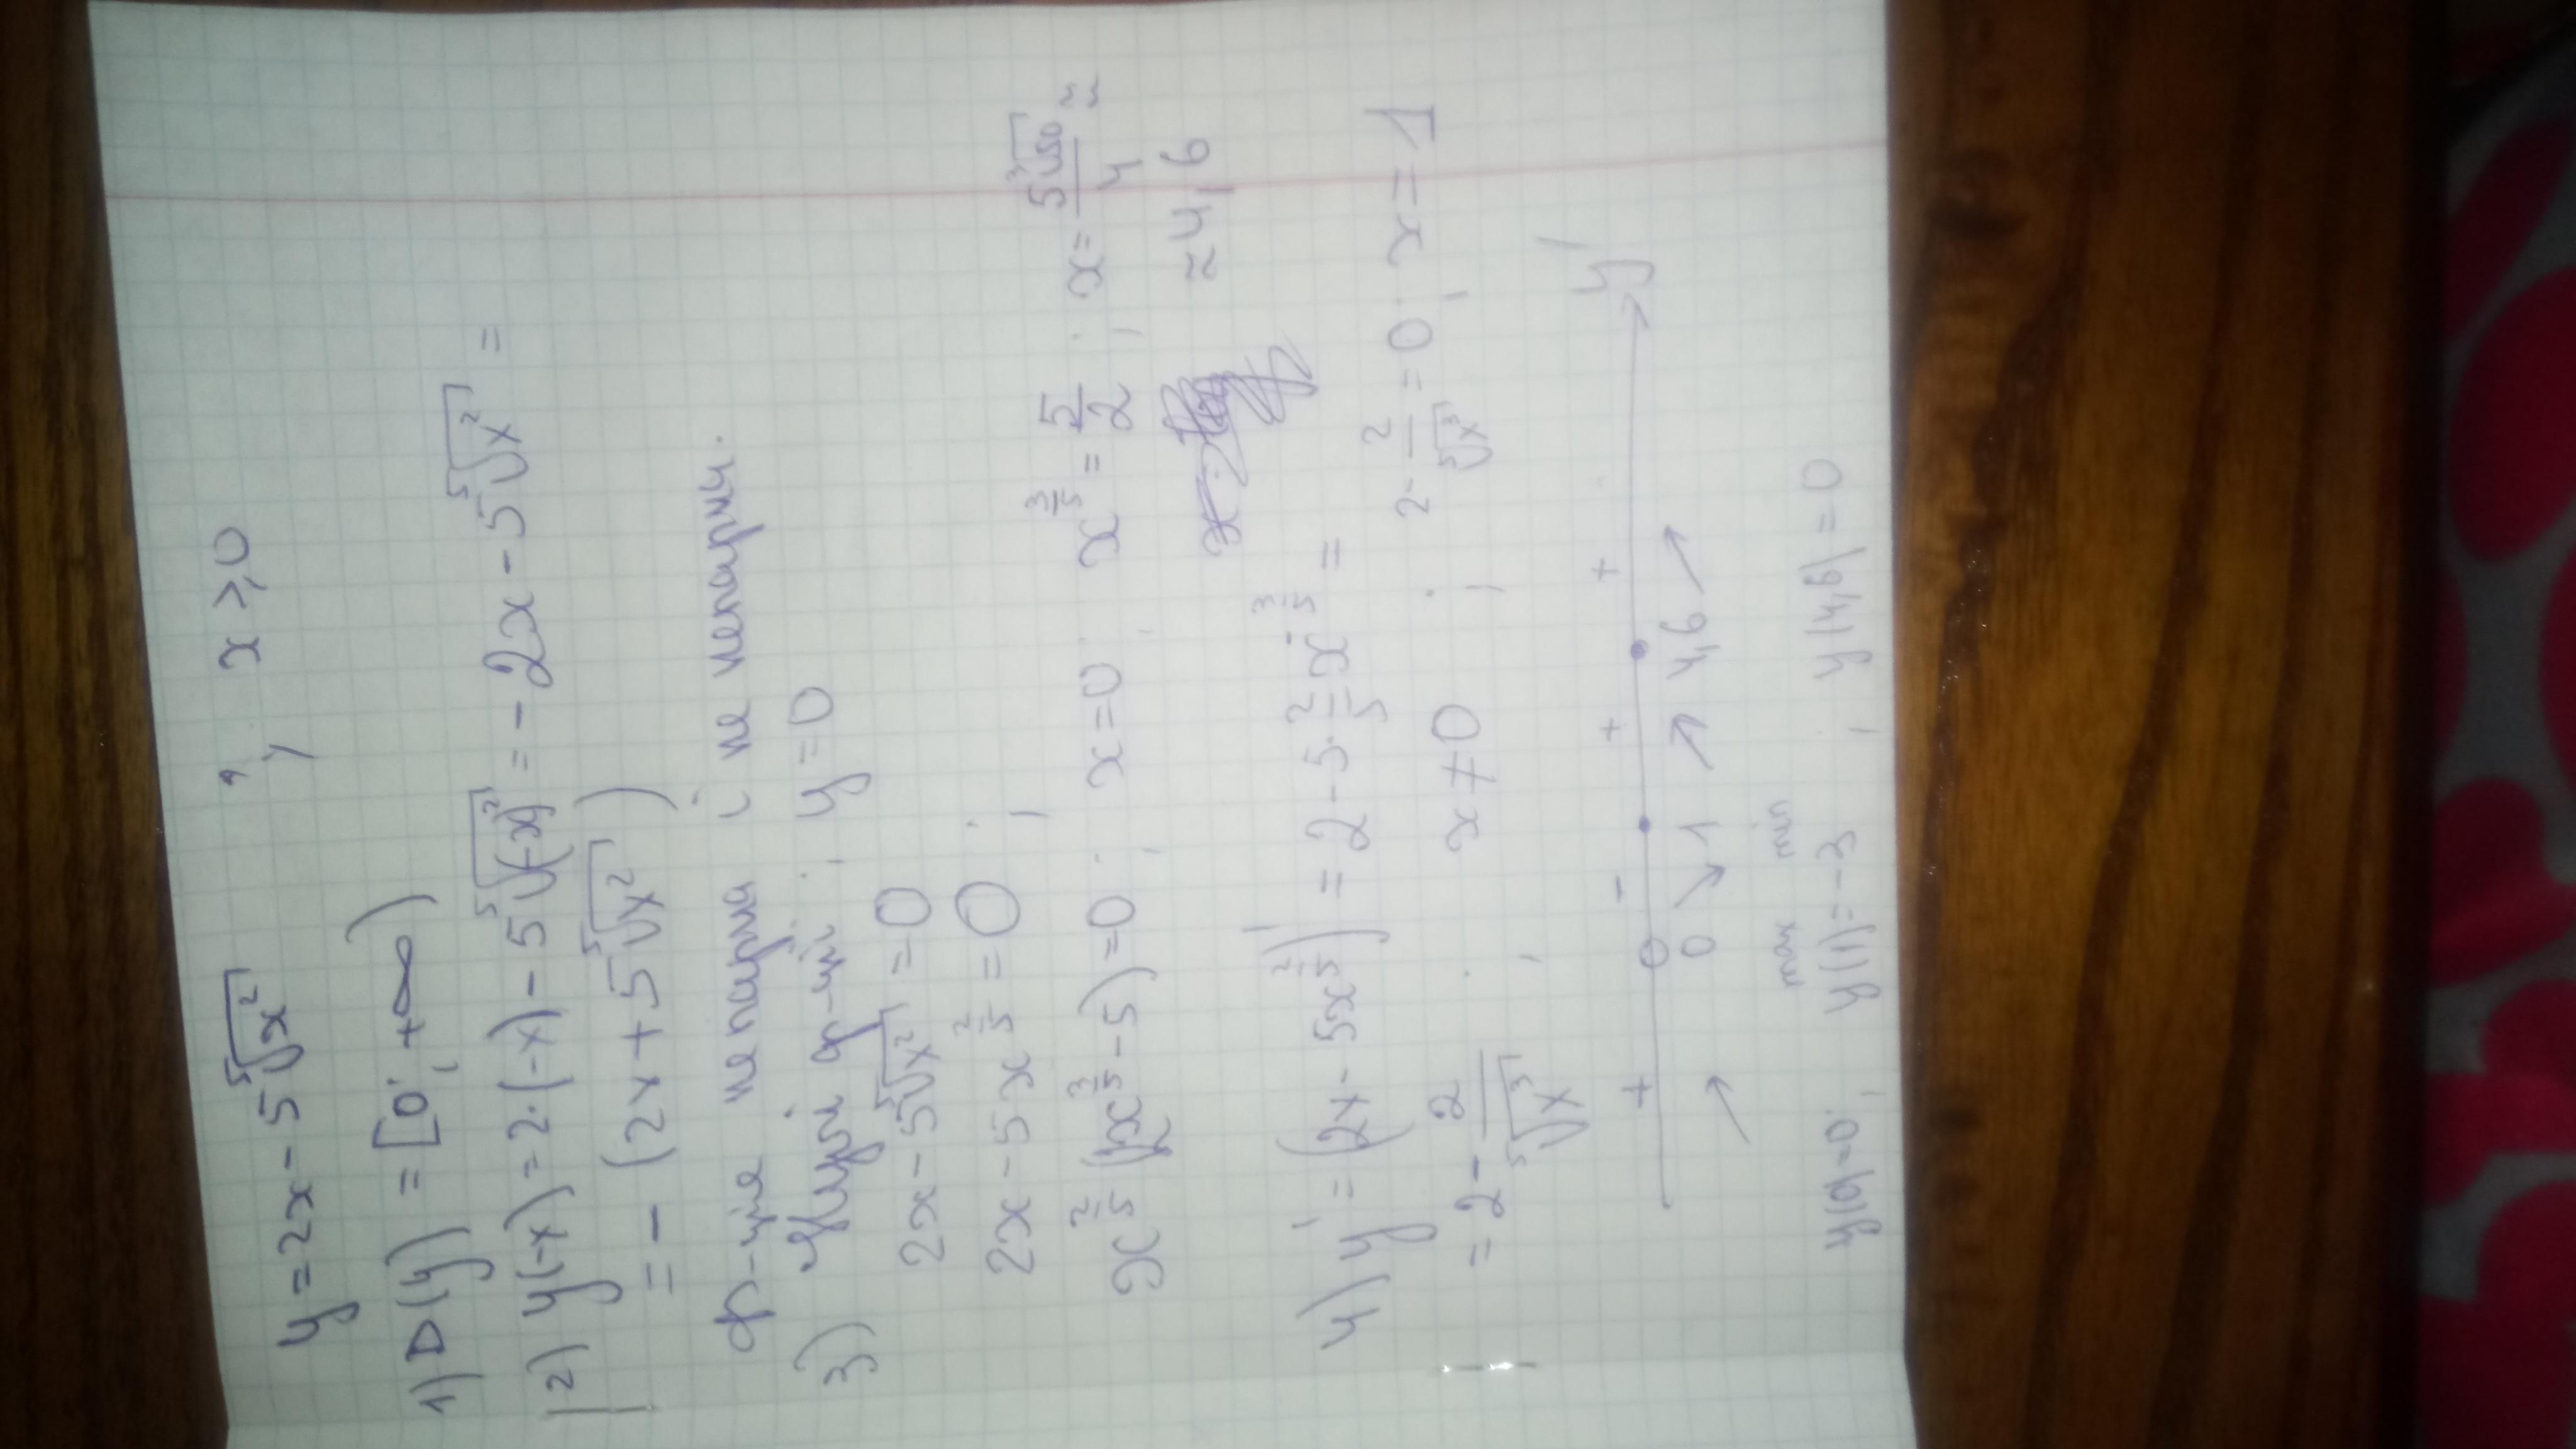 y = 2x - 5⁵√x² ; x ≥ 0
1) D(y) = [0; +∞)
2) y(-x) = 2·(-x) - 5⁵√(-x)² = -2x - 5⁵√x² =
= -(2x + 5⁵√x²)
ф-ція не парна і не непарна.
3) ф-ції ; y = 0
2x - 5⁵√x² = 0
2x - 5x^(2/5) = 0 ;
x^(2/5) (2x^(3/5) - 5) = 0 ; x = 0 ; x^(3/5) = 5/2 ; x = 5³√150/4 ≈
≈ 4,6
4) y' = (2x - 5x^(2/5))' = 2 - 5·2/5 x^(-3/5) =
= 2 - 2/⁵√x³ ; x ≠ 0 ; 2 - 2/⁵√x³ = 0 ; x = 1
+ - + + y'
0 1 4,6
max min
y(0) = 0; y(1) = -3 ; y(4,6) = 0